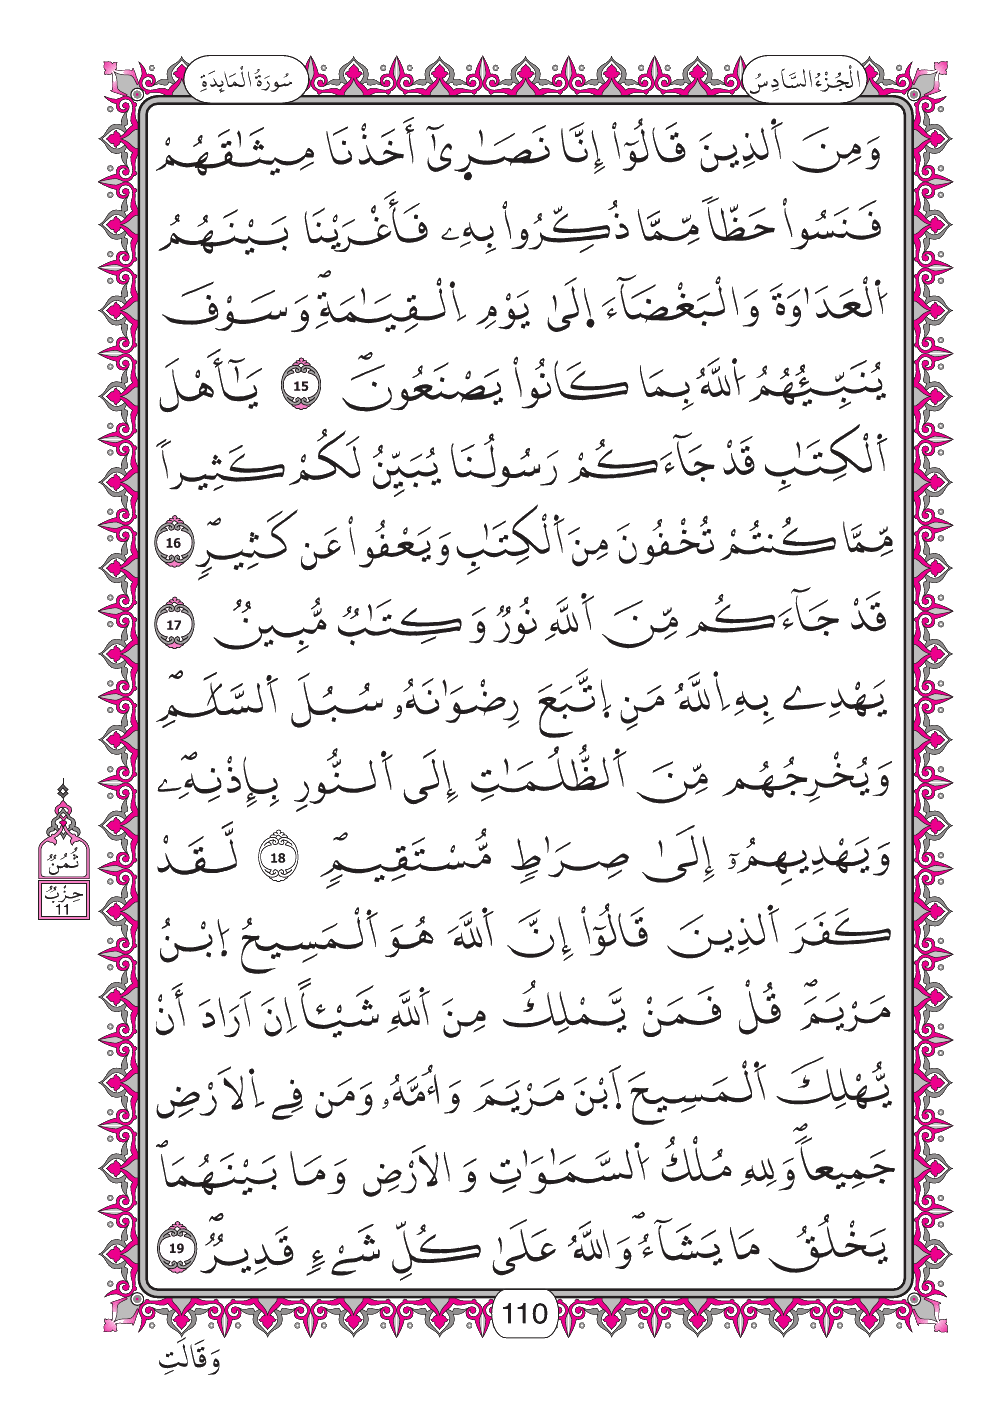 الْجُزْءُ السَّادِسُ
سُورَةُ الْمَايِٕدَةِ
وَمِنَ اَ۬لذِينَ قَالُوٓاْ إِنَّا نَصَٰر۪ىٰٓ أَخَذْنَا مِيثَٰقَهُمْ
فَنَسُواْ حَظّاٗ مِّمَّا ذُكِّرُواْ بِهِۦ فَأَغْرَيْنَا بَيْنَهُمُ
اُ۬لْعَدَٰوَةَ وَالْبَغْضَآءَ اِ۪لَىٰ يَوْمِ اِ۬لْقِيَٰمَةِۖ وَسَوْفَ
يُنَبِّئُهُمُ اُ۬للَّهُ بِمَا كَانُواْ يَصْنَعُونَۖ 15 يَٰٓأَهْلَ
اَ۬لْكِتَٰبِ قَدْ جَآءَكُمْ رَسُولُنَا يُبَيِّنُ لَكُمْ كَثِيراٗ
مِّمَّا كُنتُمْ تُخْفُونَ مِنَ اَ۬لْكِتَٰبِ وَيَعْفُواْ عَن كَثِيرٖۖ 16
قَدْ جَآءَكُم مِّنَ اَ۬للَّهِ نُورٞ وَكِتَٰبٞ مُّبِينٞ 17
يَهْدِے بِهِ اِ۬للَّهُ مَنِ اِ۪تَّبَعَ رِضْوَٰنَهُۥ سُبُلَ اَ۬لسَّلَٰمِۖ
وَيُخْرِجُهُم مِّنَ اَ۬لظُّلُمَٰتِ إِلَى اَ۬لنُّورِ بِإِذْنِهِۦۖ
وَيَهْدِيهِمُۥٓ إِلَىٰ صِرَٰطٖ مُّسْتَقِيمٖۖ 18 لَّقَدْ
كَفَرَ اَ۬لذِينَ قَالُوٓاْ إِنَّ اَ۬للَّهَ هُوَ اَ۬لْمَسِيحُ اُ۪بْنُ
مَرْيَمَۖ قُلْ فَمَنْ يَّمْلِكُ مِنَ اَ۬للَّهِ شَيْـٔاً اِنَ اَرَادَ أَنْ
يُّهْلِكَ اَ۬لْمَسِيحَ اَ۪بْنَ مَرْيَمَ وَأُمَّهُۥ وَمَن فِے اِ۬لَارْضِ
جَمِيعاٗۖ وَلِلهِ مُلْكُ اُ۬لسَّمَٰوَٰتِ وَالَارْضِ وَمَا بَيْنَهُمَاۖ
يَخْلُقُ مَا يَشَآءُۖ وَاللَّهُ عَلَىٰ كُلِّ شَےْءٖ قَدِيرٞۖ 19
ثُمُنٌ
حِزْبٌ
11
110
وَقَالَتِ